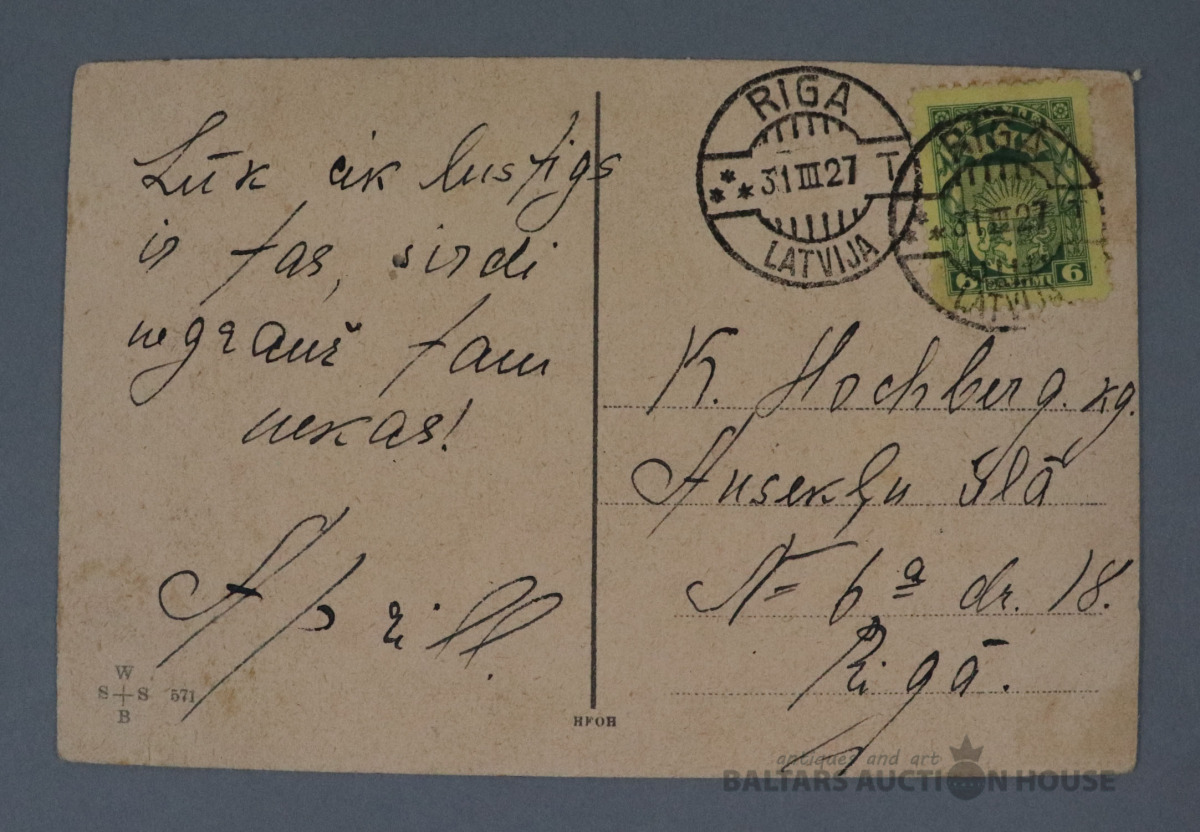 Lūk cik lustigs
ir tas, sirdi
negrauž tam
nekas!
April!!
W
S S 571
B
HFOH
RIGA
31 III 27 T
LATVIJA
RIGA
31 III 27 T
LATVIJA
6 6
K. Hochberg. kg.
Ausekļu ielā
№ 6ª dz. 18.
Rigā.
antiques and art
BALTARS AUCTION HOUSE